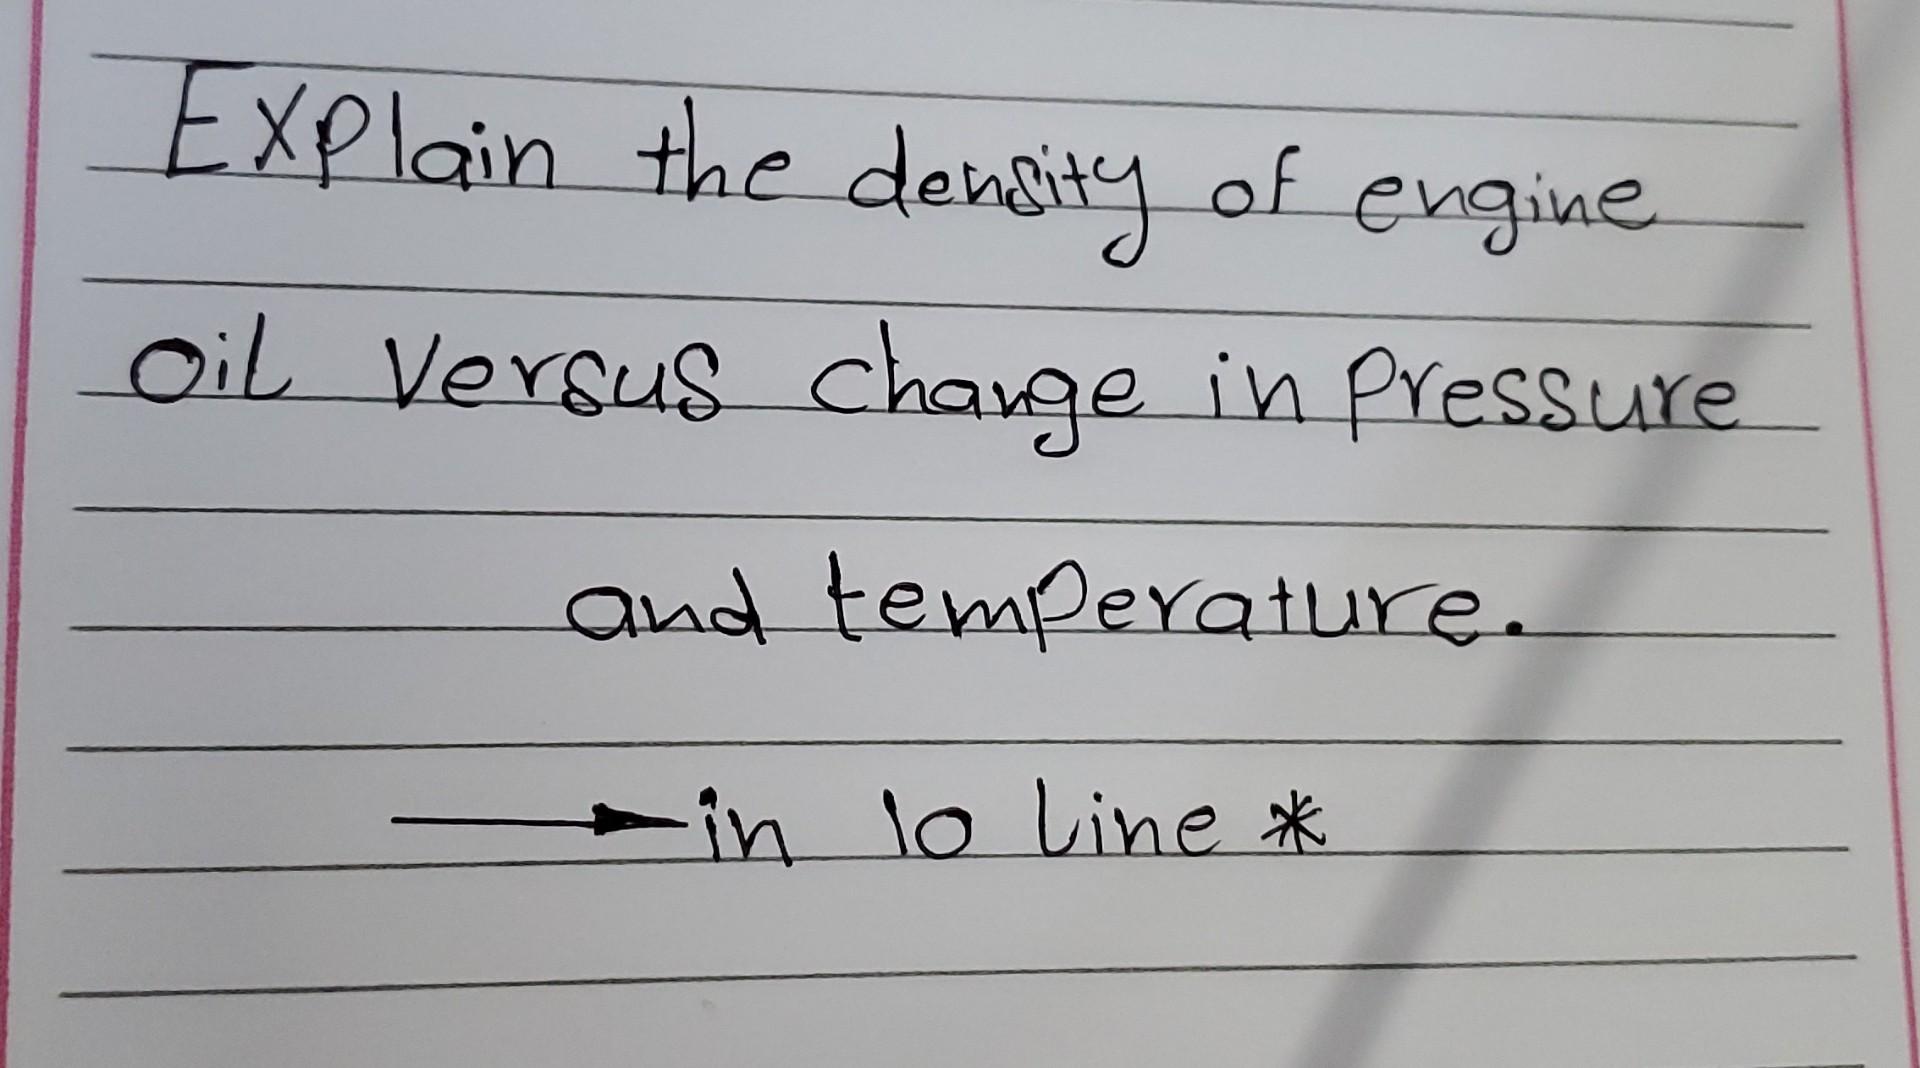 Explain the density of engine
oil versus change in pressure
and temperature.
→ in 10 line *